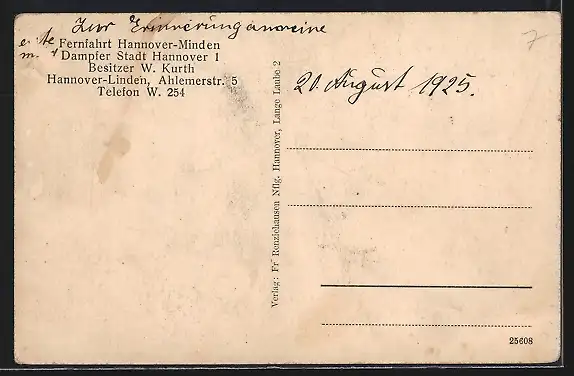 Zur Erinnerung an meine
erste Fernfahrt Hannover-Minden
m. d Dampfer Stadt Hannover 1
Besitzer W. Kurth
Hannover-Linden, Ahlemerstr. 5
Telefon W. 254
20. August 1925.
Verlag: Fr Renziehausen Nflg. Hannover, Lange Laube 2
25608
7